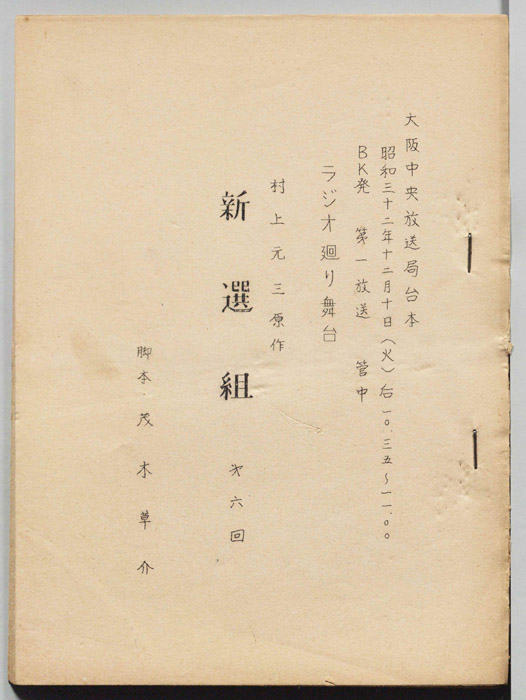 大阪中央放送局台本
昭和三十二年十二月十日（火）后一〇.三五～一一.〇〇
BK発 第一放送 管中
ラジオ廻り舞台
村上元三原作
新選組 才六回
脚本 茂木草介